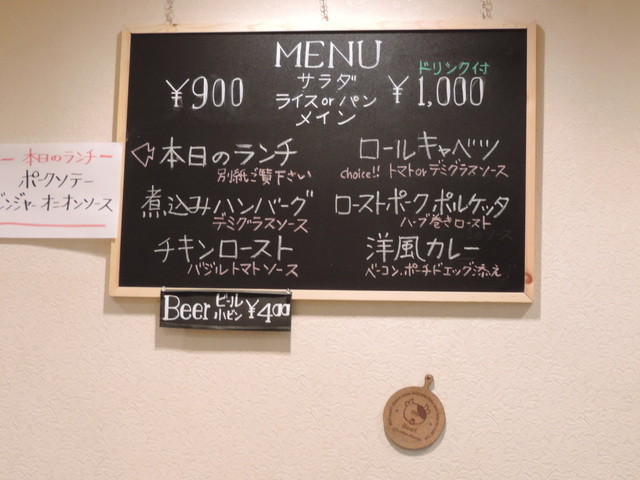 MENU
¥900
サラダ
ライス or パン
メイン
ドリンク付
¥1,000
本日のランチ
別紙ご覧下さい
煮込みハンバーグ
デミグラスソース
チキンロースト
バジルトマトソース
ロールキャベツ
choice!! トマト or デミグラスソース
ローストポーク ポルケッタ
ハーブ巻きロースト
洋風カレー
ベーコン、ポーチドエッグ添え
ー 本日のランチ ー
ポークソテー
ジンジャーオニオンソース
Beer ビール 小ビン ¥400
Beef